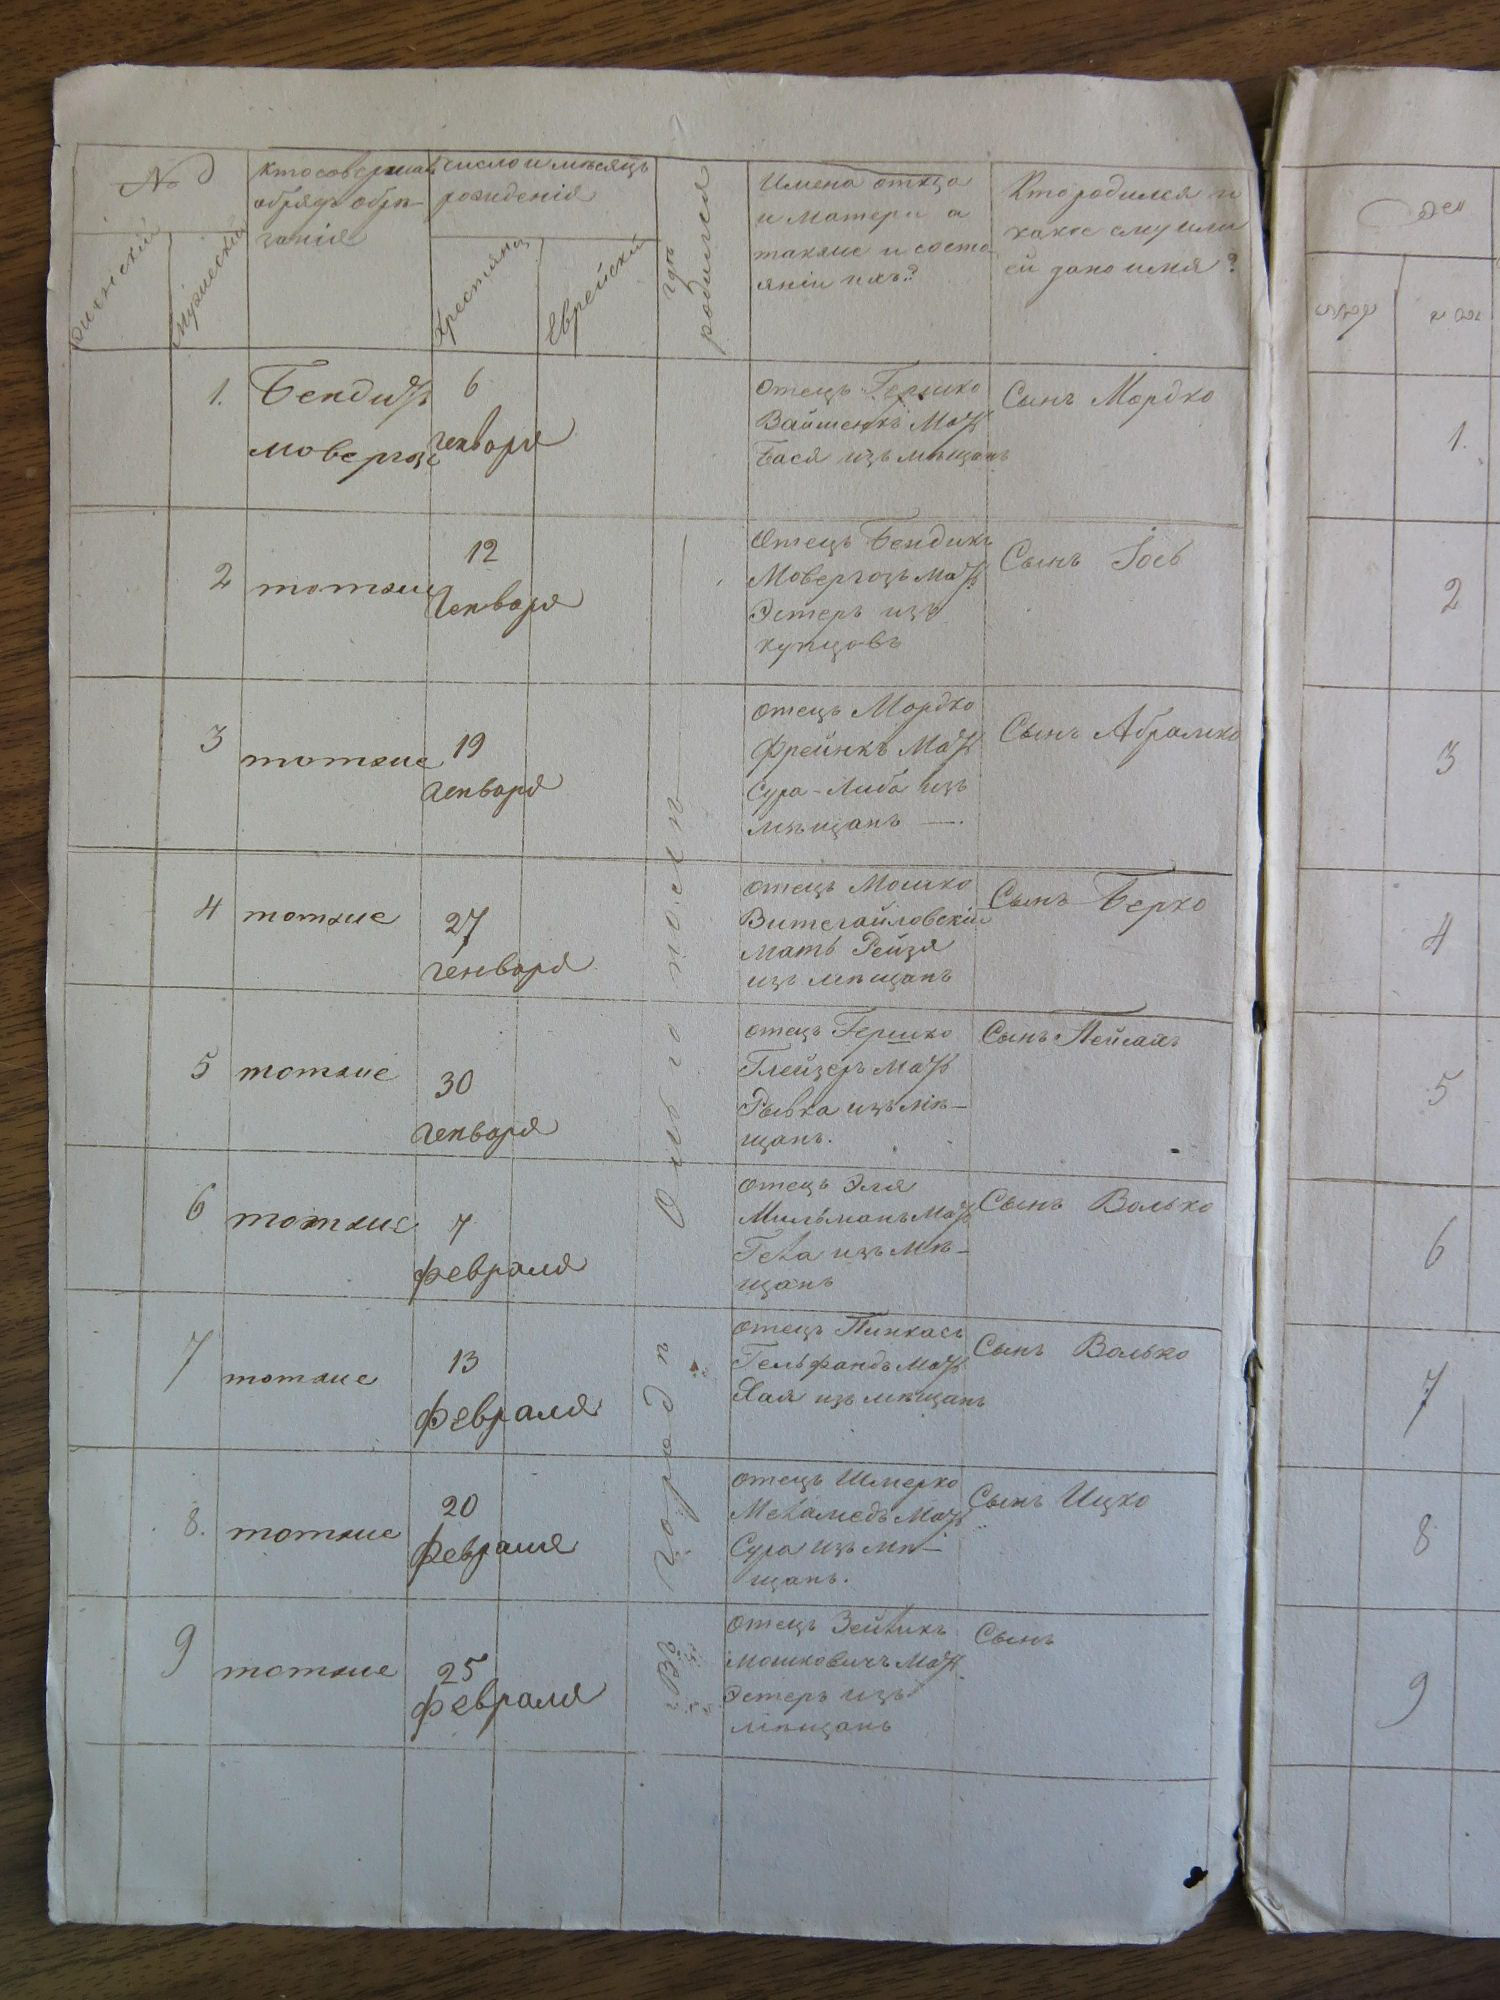 №
женскій
мужескій
кто совершал
обрядъ обре-
занія
число и мѣсяцъ
рожденія
Христіянс
Еврейскій
гдѣ
родился
Имена отца
и матери а
также и состо-
яніи ихъ?
Кто родился и
какое ему или
ей дано имя?
1.
Бендитъ
мовергозъ
6
генваря
отецъ Гершко
Вайшенкъ Мать
Бася изъ мѣщанъ
Сынъ Мордко
2
тотже
12
Генваря
Отецъ Бендикъ
Мовергозъ Мать
Эстеръ изъ
купцовъ
Сынъ Іосъ
3
тотже
19
генваря
отецъ Мордко
Фрейнкъ Мать
Сура-Либа изъ
мѣщанъ —.
Сынъ Абрамко
4
тотже
27
генваря
отецъ Мошко
Витегайловскій
мать Рейзя
изъ мѣщанъ
Сынъ Берко
5
тотже
30
генваря
отецъ Гершко
Глейзеръ Мать
Рывка изъ мѣ-
щанъ.
Сынъ Пейсахъ
6
тотже
7
февраля
отецъ Эля
Мильманъ Мать
Геня изъ мѣ-
щанъ
Сынъ Волько
7
тотже
13
февраля
отецъ Пинкасъ
Гельфандъ Мать
Хая изъ мѣщанъ
Сынъ Волько
8.
тотже
20
февраля
отецъ Шмерко
Меламедъ Мать
Сура изъ мѣ-
щанъ.
Сынъ Ицко
9
тотже
25
февраля
отецъ Зейликъ
мошковичъ Мать
Эстеръ изъ
мѣщанъ
Сынъ
Въ Городѣ Ольгополѣ
1.
2
3
4
5
6
7
8
9